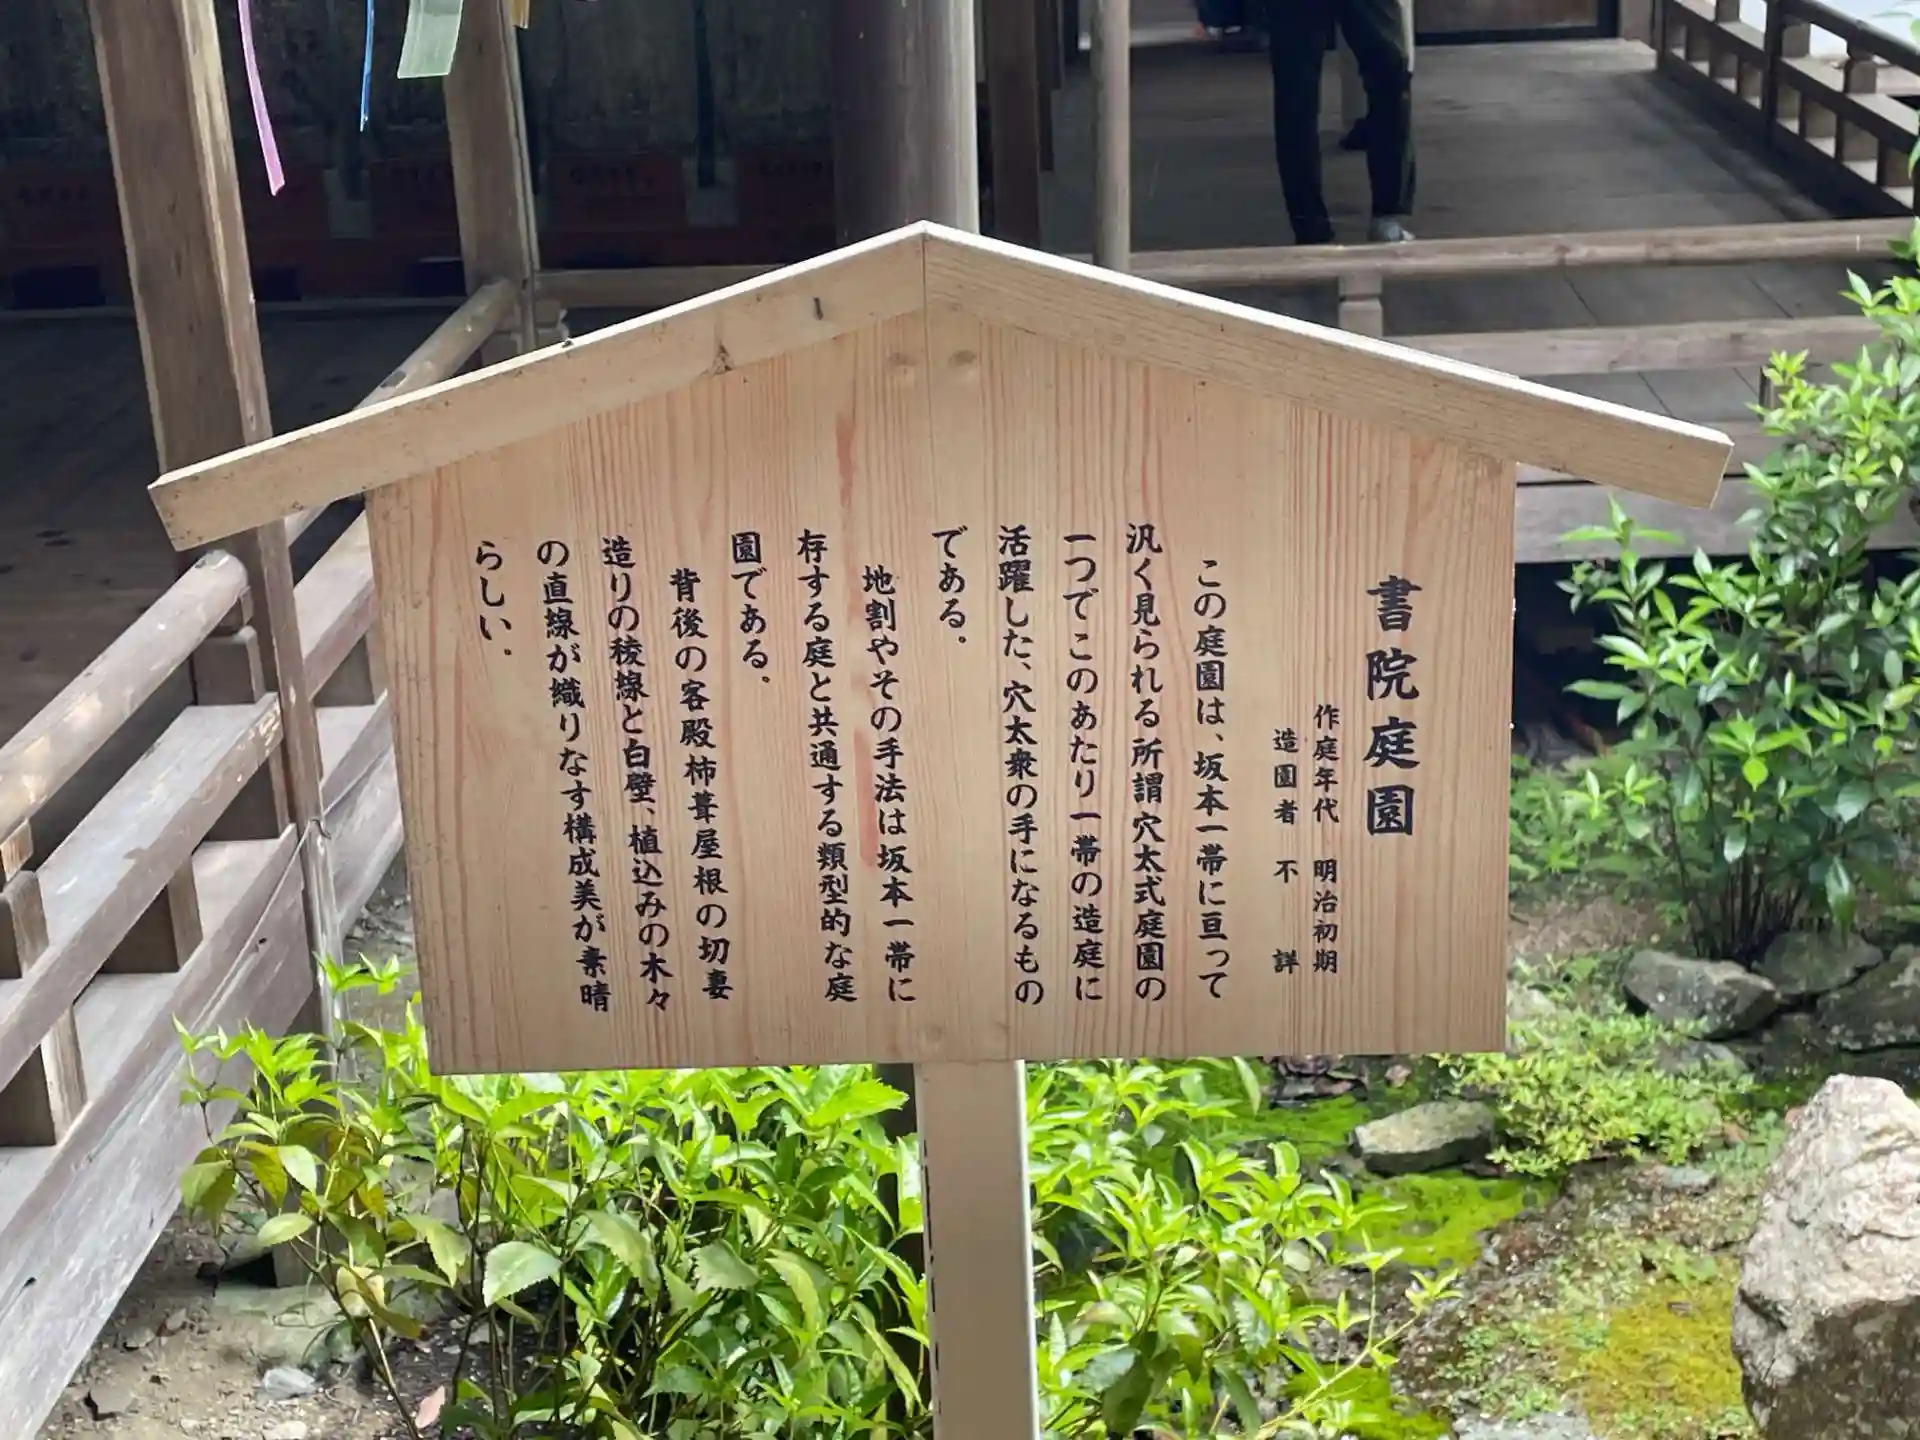 書院庭園
作庭年代　明治初期
造園者　不　詳
この庭園は、坂本一帯に亘って
汎く見られる所謂穴太式庭園の
一つでこのあたり一帯の造庭に
活躍した、穴太衆の手になるもの
である。
地割やその手法は坂本一帯に
存する庭と共通する類型的な庭
園である。
背後の客殿柿葺屋根の切妻
造りの稜線と白壁、植込みの木々
の直線が織りなす構成美が素晴
らしい.